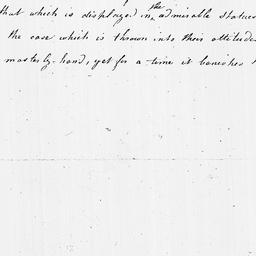 that which is displayed in the admirable statues
the ease which is thrown into their attitude
masterly hand, yet for a time it banishes